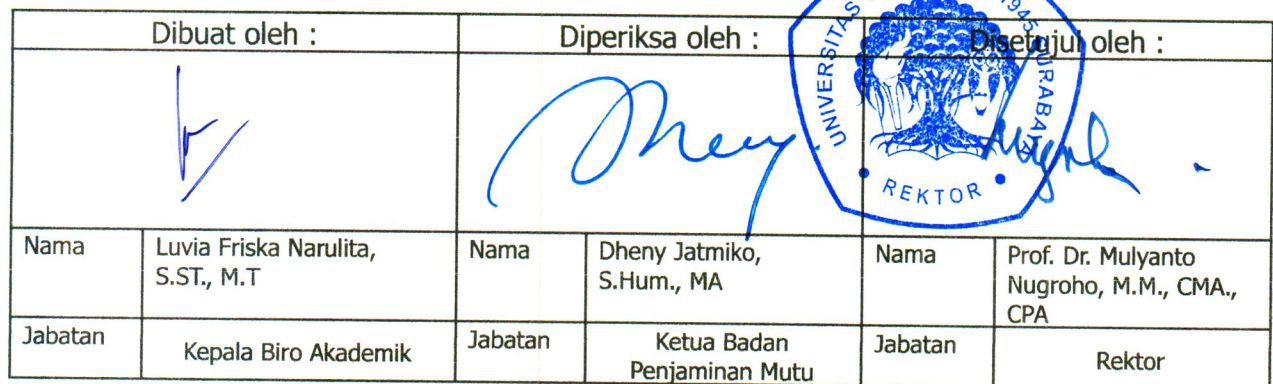 Dibuat oleh :
Diperiksa oleh :
Disetujui oleh :
UNIVERSITAS 1945 SURABAYA
REKTOR
Nama
Luvia Friska Narulita,
S.ST., M.T
Nama
Dheny Jatmiko,
S.Hum., MA
Nama
Prof. Dr. Mulyanto
Nugroho, M.M., CMA.,
CPA
Jabatan
Kepala Biro Akademik
Jabatan
Ketua Badan
Penjaminan Mutu
Jabatan
Rektor